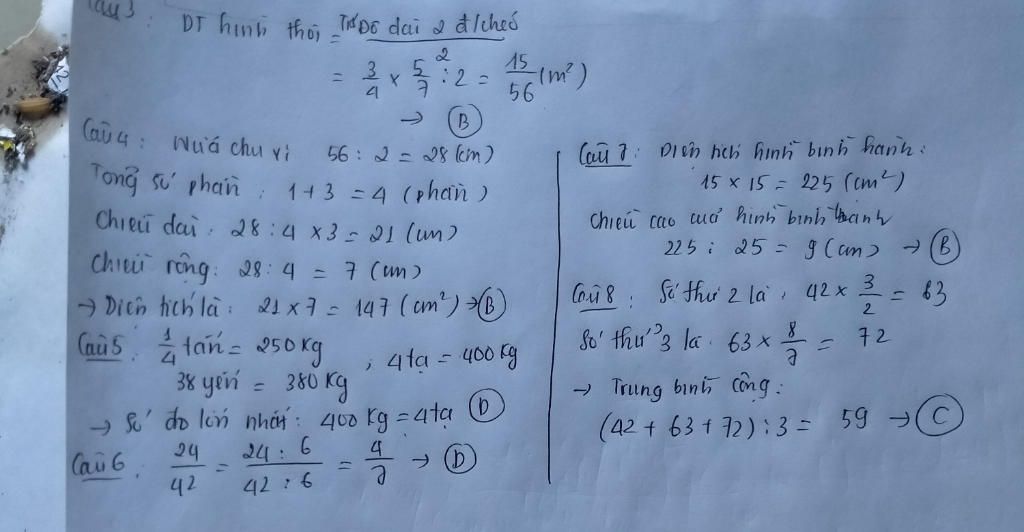 Câu 3:
DT hình thoi = Tích Độ dài 2 đ/chéo
2
= 3/4 × 5/7 : 2 = 15/56 (m²)
→ B
Câu 4: Nửa chu vi 56 : 2 = 28 (cm)
Tổng số phần : 1 + 3 = 4 (phần)
Chiều dài : 28 : 4 × 3 = 21 (cm)
Chiều rộng : 28 : 4 = 7 (cm)
→ Diện tích là : 21 × 7 = 147 (cm²) → B
Câu 5 : 1/4 tấn = 250 kg ; 4 tạ = 400 kg
38 yến = 380 kg
→ Số đo lớn nhất : 400 kg = 4 tạ D
Câu 6 : 24/42 = 24 : 6/42 : 6 = 4/7 → D
Câu 7 : Diện tích hình bình hành :
15 × 15 = 225 (cm²)
Chiều cao của hình bình hành
225 : 25 = 9 (cm) → B
Câu 8 : Số thứ 2 là : 42 × 3/2 = 63
Số thứ 3 là : 63 × 8/7 = 72
→ Trung bình cộng :
(42 + 63 + 72) : 3 = 59 → C